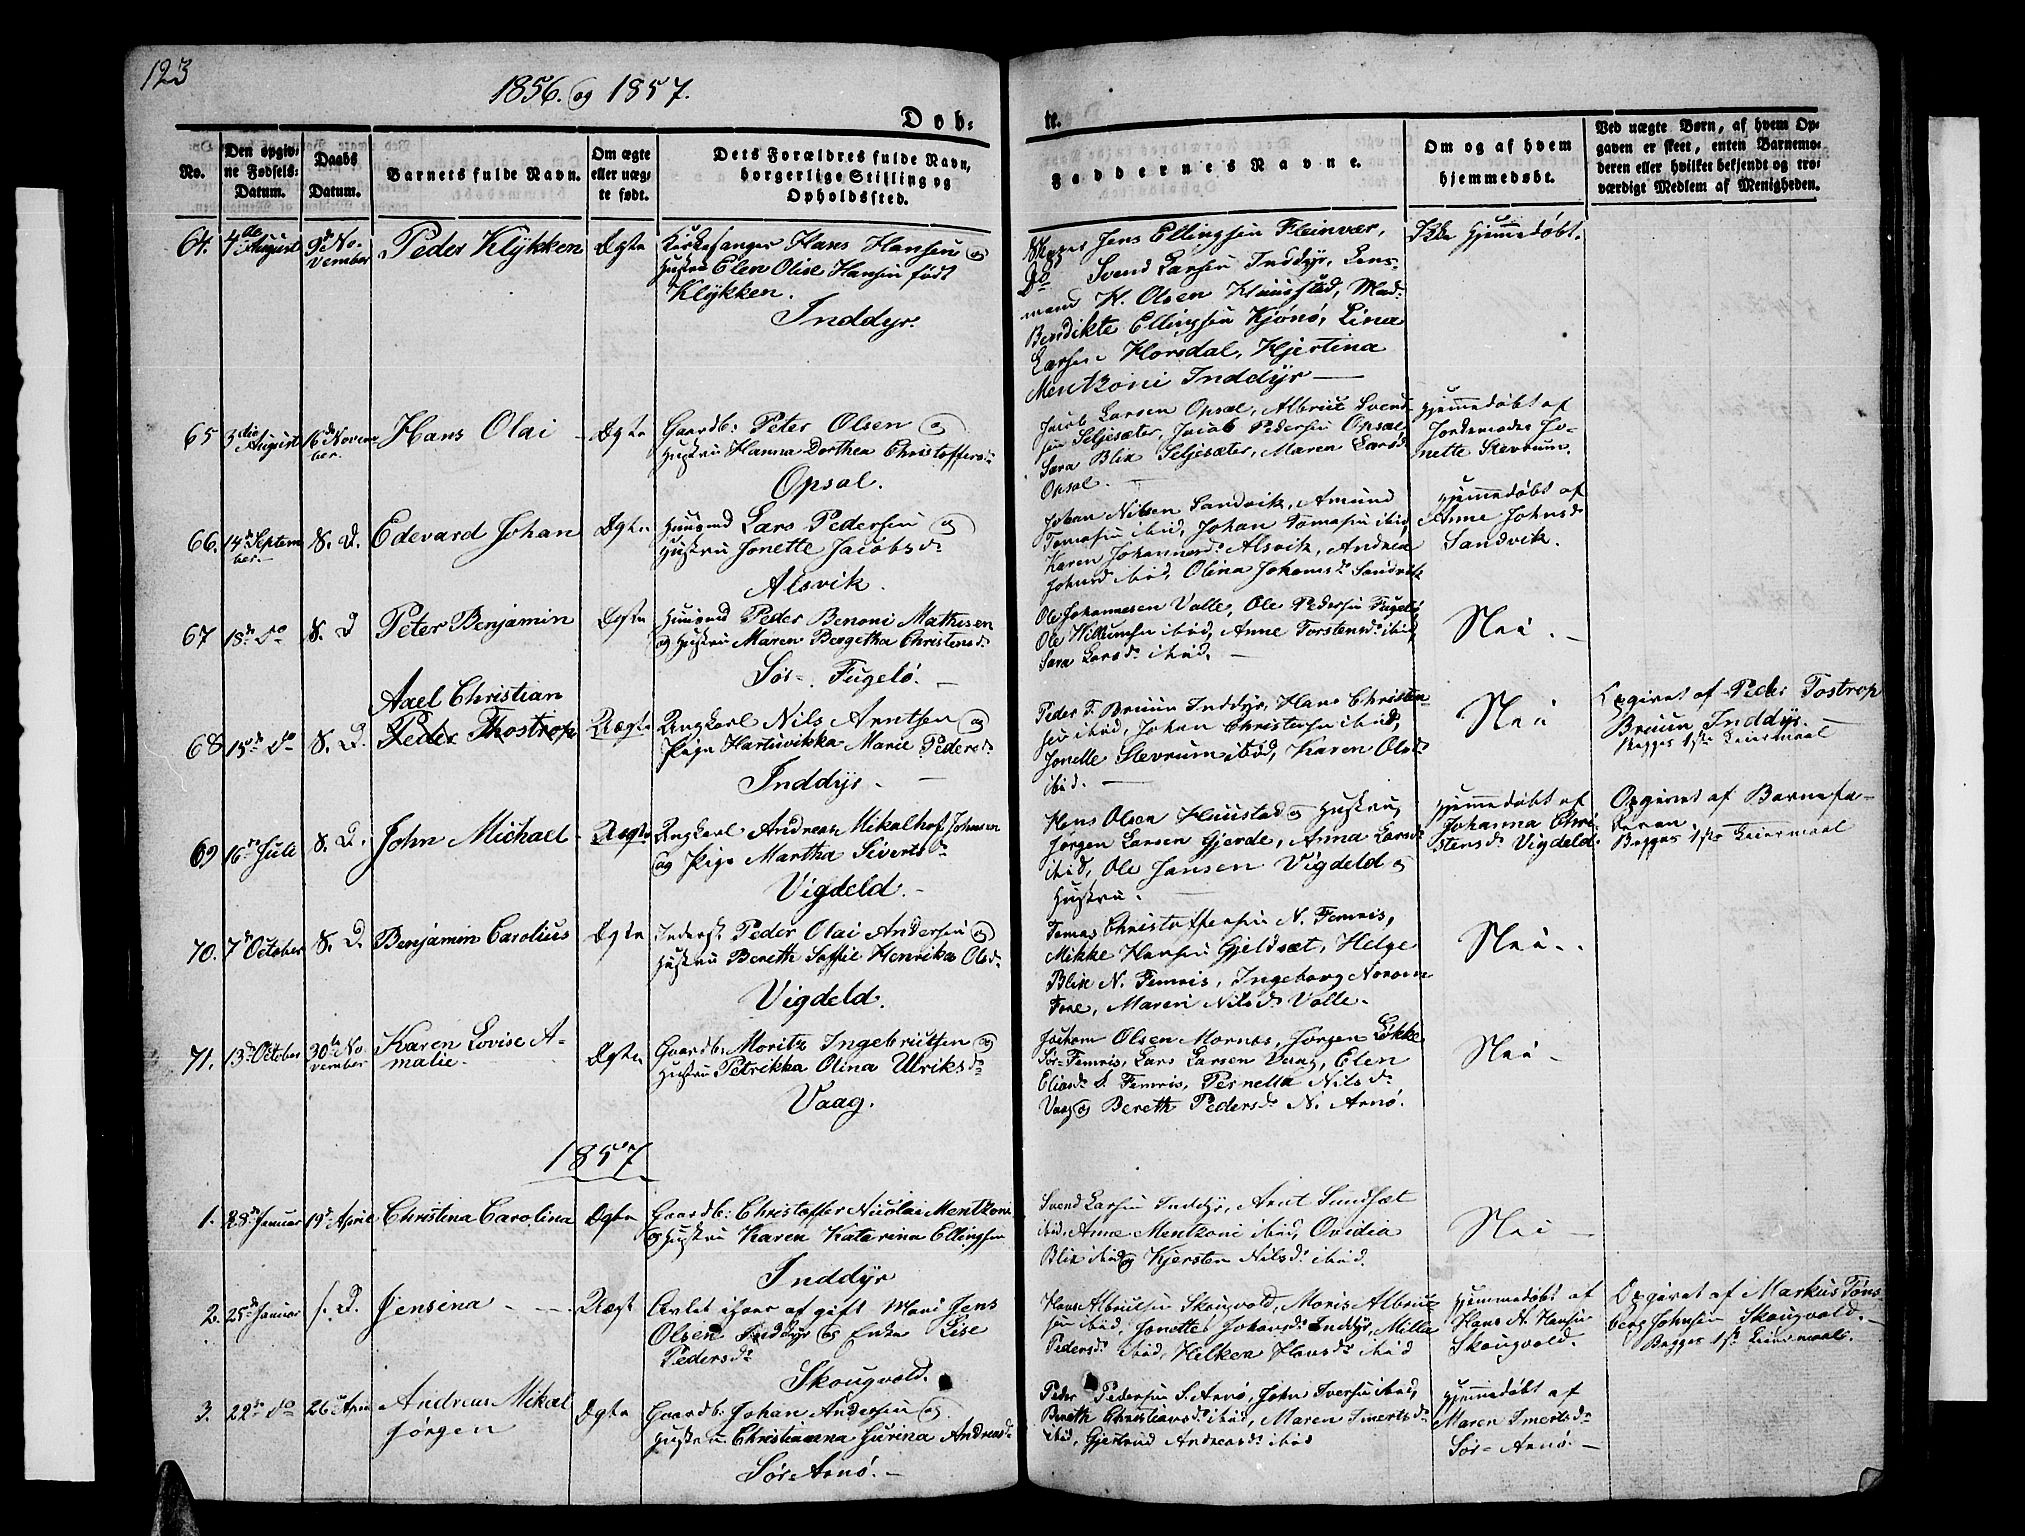 123
1856. og 1857.
Døb-
te.
No.
Den opgiv-
ne Fødsels-
Datum.
Daabs
Datum.
Barnets fulde Navn.
Om ægte
eller uæg-
te født.
Dets Forældres fulde Navn,
borgerlige Stilling og
Opholdssted.
Faddernes Navne.
Om og af hvem
hjemmedøbt.
Ved uægte Børn, af hvem Op-
gaven er skeet, enten Barnemo-
deren eller hvilket bekjendt og tro-
værdigt Medlem af Menigheden.
64.
4de August
9de No-
vember
Peder Klykken
Ægte
Kirkesanger Hans Hansen og
Hustru Elen Olise Hansen født
Klykken.
Inddyr.
Jens Ellingsen Fleinvær,
Do Svend Larsen Inddyr, Lens-
mand H. Olsen Haugstad, Mad:
Bendikte Ellingsen Kjønø, Lina
Larsen Horsdal, Kjertina
Mentzoni Inddyr
Ikke hjemmedøbt.
65
3die August
16de Novem-
ber.
Hans Olai
Ægte
Gaardb: Peter Olsen og
Hustru Hanna Dorthea Christoffersen
Opsal.
Jacob Larsen Opsal, Albrict Svend-
sen Seljesæter, Jacob Pedersen Opsal
Sara Blix Seljesæter, Maren Larsd.
Opsal.
hjemmedøbt af
Jordemoder Jo-
nette Stevrum.
66.
14de Septem-
ber.
S. D.
Edevard Johan
Ægte
Huusmd Lars Pedersen og
Hustru Jonette Jacobsdr
Alsvik.
Johan Nilsen Sandvik, Amund
Tomasen ibid, Johan Tomasen ibid,
Karen Johannesd. Alsvik, Andrea
Johnsd ibid, Olina Johansd. Sandvik
hjemmedøbt af
Anne Johnsd
Sandvik.
67
18de do
S. D
Peter Benjamin
Ægte
Huusmd Peder Benoni Mathisen
og Hustru Maren Bergetha Christensd.
Sør-Fugelø.
Ole Johannesen Valle, Ole Pedersen Fugelø,
Ole Willumsen ibid, Anne Torstensd. ibid,
Sara Larsd. ibid.
Nei.
68
15de do
S. D.
Axel Christian
Peder Thostrop
Uægte
Ungkarl Nils Arntsen og
Pige Hartvikka Marie Pedersd.
Inddyr
Peder T. Bruun Inddyr, Hans Christen-
sen ibid, Johan Christensen ibid,
Jonette Stevrum ibid, Karen Olsd.
ibid.
Nei
Opgivet af Peder Tostrop
Bruun Inddyr.
Begges 1ste Leiermaal
69
16de Juli
S. D.
John Michael
Uægte
Ungkarl Andreas Mikalhof Johnsen
og Pige Martha Sivertsd.
Vigdeld.
Hans Olsen Haustad og Hustru,
Jørgen Larsen Gjerde, Anna Larsd
ibid, Ole Jansen Vigdeld og
Hustru.
hjemmedøbt af
Johanna Chri-
stensd. Vigdeld.
Opgivet af Barnefa-
deren.
Begges 1ste Leiermaal
70.
7de October
S. D.
Benjamin Carolius
Ægte
Inderst. Peder Olai Andersen og
Hustru Bereth Soffie Henrika Olsd.
Vigdeld.
Tomas Christoffersen N. Femris,
Mikke Hansen Gjeldsæt, Helge
Blix N. Femris, Ingeborg
Maren Nilsd. Valle.
Nei.
71.
13de October
30te No-
vember
Karen Lovise A-
malie
Ægte
Gaardb: Moritz Ingebrictsen og
Hustru Petrikka Olina Ulriksd.
Vaag.
Jochom Olsen Mornes, Jørgen Løkke
Sør-Femris, Lars Larsen Vaag, Elen
Eliasd. S. Femris, Pernella Nilsd.
Vaag og Bereth Pedersd. N. Arnø.
Nei
1857
1.
28de Januar
19de April
Christina Carolina
Ægte
Gaardb: Christoffer Nicolai Mentzoni
og Hustru Karen Katarina Ellingsen
Inddyr
Svend Larsen Inddyr, Arnt Sundsæt
ibid, Anne Mentzoni ibid, Ovidia
Blix ibid og Kjersten Nilsd. ibid.
Nei
2.
25de Januar
S. D.
Jensina
Uægt
Avlet af gift Mand Jens
Olsen Inddyr og Enke Lise
Pedersdr
Skougvold.
Hans Albrictsen Skougvold, Moris Albrict-
sen ibid, Jonette Johansd. Inddyr, Milla
Pedersd. ibid, Helken Hansd. ibid
hjemmedøbt af
Hans A. Hansen
Skougvold.
Opgivet af Markus Tøns-
berg Johnsen Skougvold.
Begges 1ste Leiermaal.
3.
22de do
26de April
Andreas Mikal
Jørgen
Ægte
Gaardb: Johan Andersen og
Hustru Christianna Gurina Andreasd.
Sør Arnø.
Peder Pedersen S. Arnø, John Iversen ibid,
Bereth Christiansd. ibid, Maren Imertsd.
ibid, Gjertrud Andreasd. ibid
hjemmedøbt af
Maren Imertsd.
Sør-Arnø.